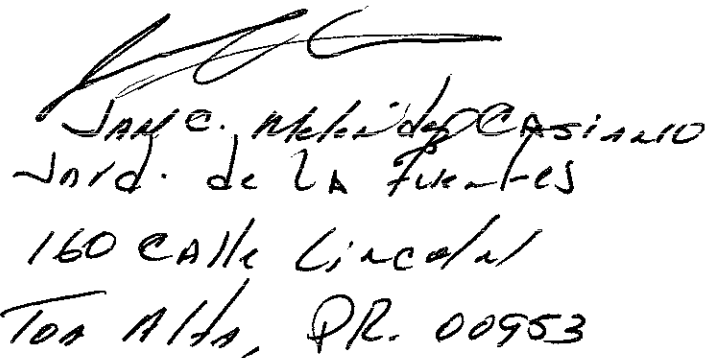 Jan C. Meléndez Casiano
Jard. de la Fuentes
160 Calle Lincoln
Toa Alta, PR. 00953